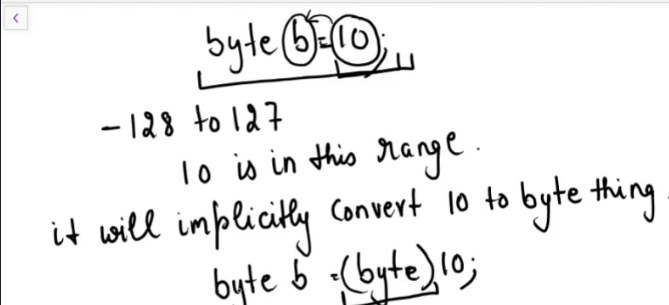 byte b = 10;
-128 to 127
10 is in this range.
it will implicitly convert 10 to byte thing.
byte b = (byte) 10;